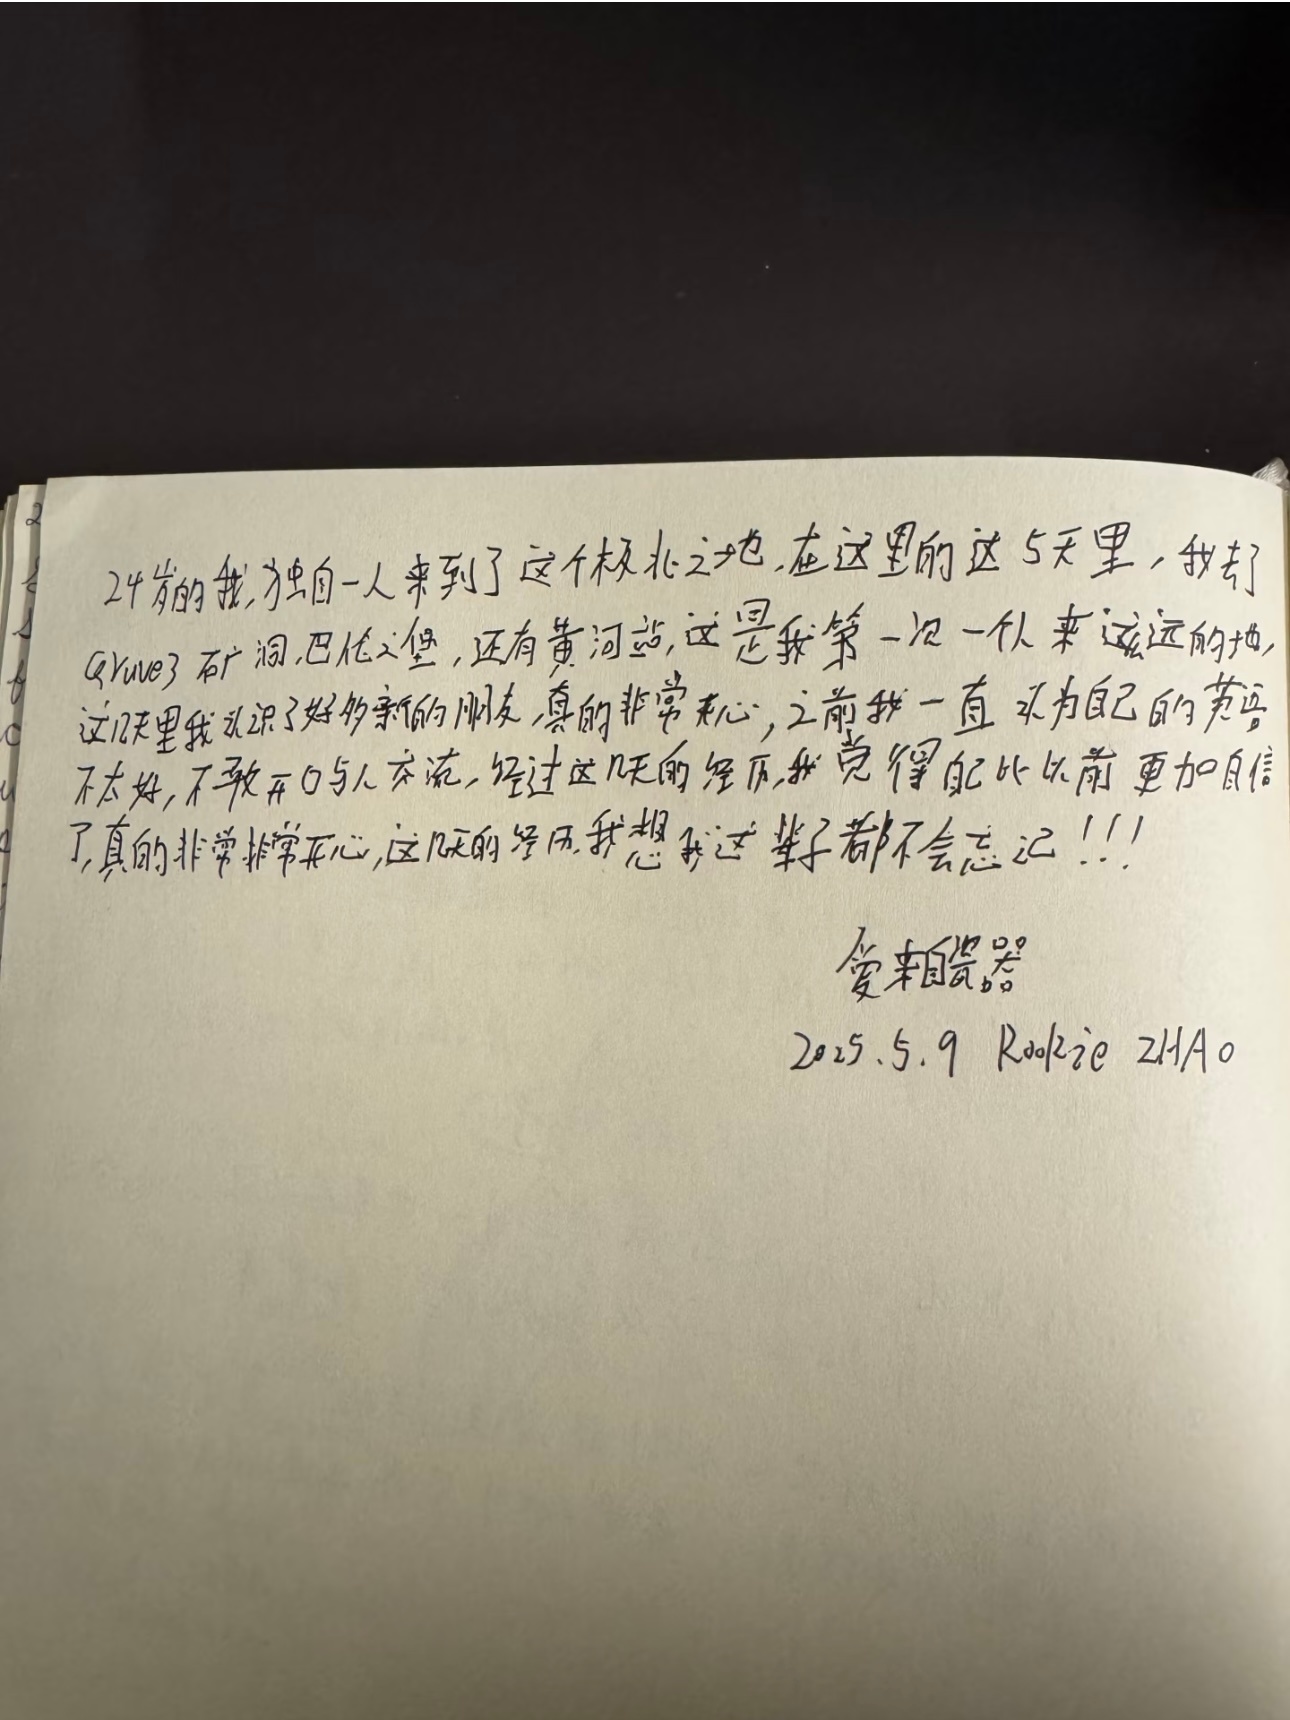 24岁的我,独自一人来到了这个极北之地,在这里的这5天里,我去了
Gruve3矿洞,巴伦之堡,还有黄河站,这是我第一次一个人来这么远的地,
这几天里我认识了好多新的朋友,真的非常开心,之前我一直认为自己的英语
不太好,不敢开口与人交流,经过这几天的经历,我觉得自己比以前更加自信
了,真的非常非常开心,这几天的经历,我想我这辈子都不会忘记!!!
爱来自瓷器
2025.5.9 Rookie ZHAO